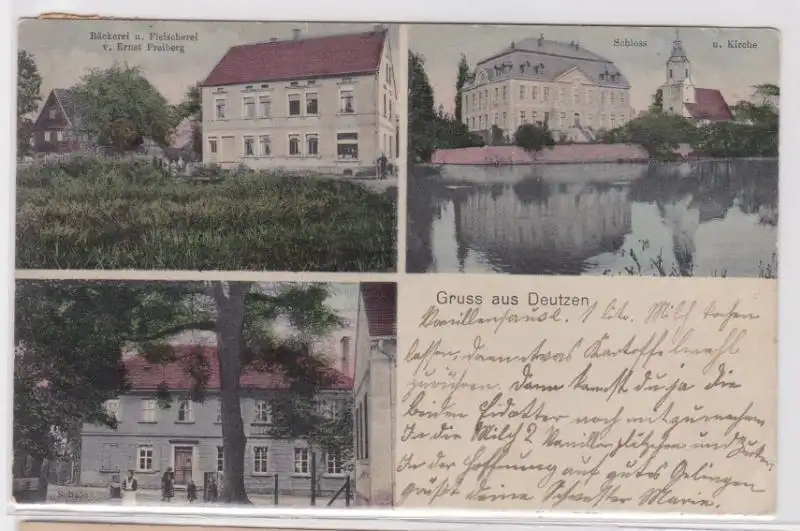 Bäckerei u. Fleischerei
v. Ernst Freiberg
Schloss u. Kirche
Schule
Gruss aus Deutzen
Vanillensauce. 1 litr. Milch kochen
lassen, dann etwas Kartoffelmehl
zurühren. Dann kannst du ja die
beiden Eidotter noch
In die Milch 2 Vanillen und Zucker
In der Hoffnung auf gutes Gelingen
grüßt deine Schwester Marie.